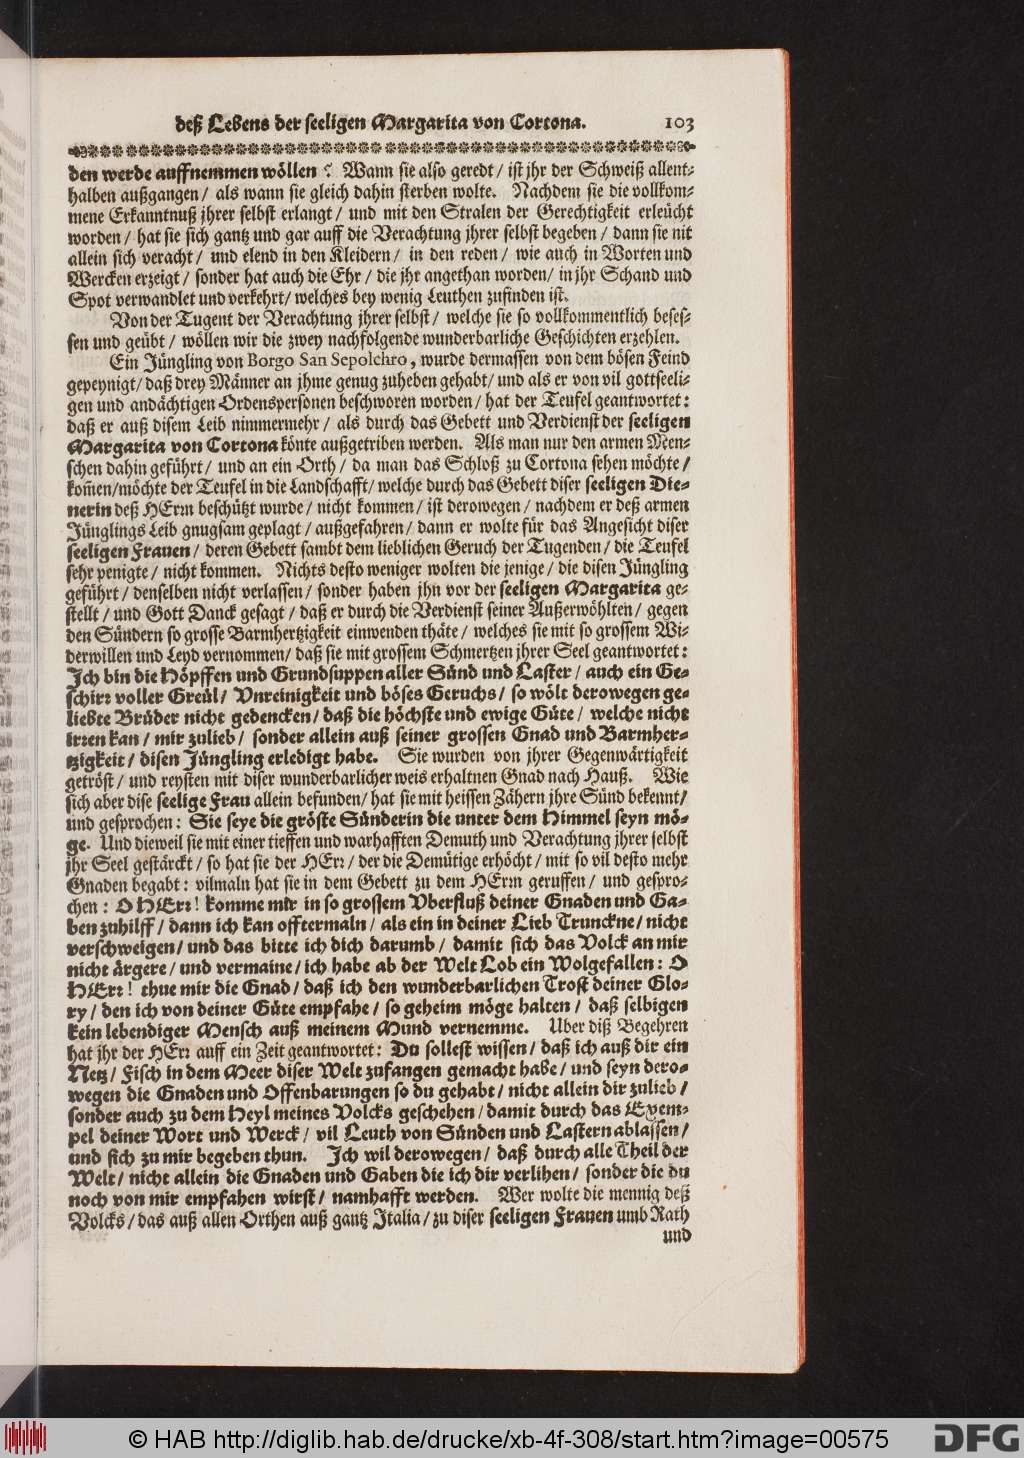 deß Lebens der seeligen Margarita von Cortona. 103
den werde auffnemmen wöllen? Wann sie also geredt / ist jhr der Schweiß allent-
halben außgangen / als wann sie gleich dahin sterben wolte. Nachdem sie die vollkom-
mene Erkanntnuß jhrer selbst erlangt / und mit den Stralen der Gerechtigkeit erleücht
worden / hat sie sich gantz und gar auff die Verachtung jhrer selbst begeben / dann sie nit
allein sich veracht / und elend in den Kleidern / in den reden / wie auch in Worten und
Wercken erzeigt / sonder hat auch die Ehr / die jhr angethan worden / in jhr Schand und
Spot verwandlet und verkehrt / welches bey wenig Leuthen zufinden ist.
Von der Tugent der Verachtung jhrer selbst / welche sie so vollkommentlich beses-
sen und geübt / wöllen wir die zwey nachfolgende wunderbarliche Geschichten erzehlen.
Ein Jüngling von Borgo San Sepolchro, wurde dermassen von dem bösen Feind
gepeynigt / daß drey Männer an jhme genug zuheben gehabt / und als er von vil gottseeli-
gen und andächtigen Ordenspersonen beschworen worden / hat der Teufel geantwortet:
daß er auß disem Leib nimmermehr / als durch das Gebett und Verdienst der seeligen
Margarita von Cortona könte außgetriben werden. Als man nur den armen Men-
schen dahin geführt / und an ein Orth / da man das Schloß zu Cortona sehen möchte /
kom̃en / möchte der Teufel in die Landschafft / welche durch das Gebett diser seeligen Die-
nerin deß HErrn beschützt wurde / nicht kommen / ist derowegen / nachdem er deß armen
Jünglings Leib gnugsam geplagt / außgefahren / dann er wolte für das Angesicht diser
seeligen Frauen / deren Gebett sambt dem lieblichen Geruch der Tugenden / die Teufel
sehr penigte / nicht kommen. Nichts desto weniger wolten die jenige / die disen Jüngling
geführt / denselben nicht verlassen / sonder haben jhn vor der seeligen Margarita ge-
stellt / und Gott Danck gesagt / daß er durch die Verdienst seiner Außerwöhlten / gegen
den Sündern so grosse Barmhertzigkeit einwenden thäte / welches sie mit so grossem Wi-
derwillen und Leyd vernommen / daß sie mit grossem Schmertzen jhrer Seel geantwortet:
Ich bin die Höpffen und Grundsuppen aller Sünd und Laster / auch ein Ge-
schirr voller Greül / Unreinigkeit und böses Geruchs / so wölt derowegen ge-
liebte Brüder nicht gedencken / daß die höchste und ewige Güte / welche nicht
irren kan / mir zulieb / sonder allein auß seiner grossen Gnad und Barmher-
tzigkeit / disen Jüngling erledigt habe. Sie wurden von jhrer Gegenwärtigkeit
getröst / und reysten mit diser wunderbarlicher weis erhaltnen Gnad nach Hauß. Wie
sich aber dise seelige Frau allein befunden / hat sie mit heissen Zähern jhre Sünd bekennt /
und gesprochen: Sie seye die gröste Sünderin die unter dem Himmel seyn mö-
ge. Und dieweil sie mit einer tieffen und warhafften Demuth und Verachtung jhrer selbst
jhr Seel gestärckt / so hat sie der HErr / der die Demütige erhöcht / mit so vil desto mehr
Gnaden begabt: vilmaln hat sie in dem Gebett zu dem HErrn geruffen / und gespro-
chen: O HErr! komme mir in so grossem Uberfluß deiner Gnaden und Ga-
ben zuhilff / dann ich kan offtermaln / als ein in deiner Lieb Trunckne / nicht
verschweigen / und das bitte ich dich darumb / damit sich das Volck an mir
nicht ärgere / und vermaine / ich habe ab der Welt Lob ein Wolgefallen: O
HErr! thue mir die Gnad / daß ich den wunderbarlichen Trost deiner Glo-
ry / den ich von deiner Güte empfahe / so geheim möge halten / daß selbigen
kein lebendiger Mensch auß meinem Mund vernemme. Uber diß Begehren
hat jhr der HErr auff ein Zeit geantwortet: Du sollest wissen / daß ich auß dir ein
Netz / Fisch in dem Meer diser Welt zufangen gemacht habe / und seyn dero-
wegen die Gnaden und Offenbarungen so du gehabt / nicht allein dir zulieb /
sonder auch zu dem Heyl meines Volcks geschehen / damit durch das Exem-
pel deiner Wort und Werck / vil Leuth von Sünden und Lastern ablassen /
und sich zu mir begeben thun. Ich wil derowegen / daß durch alle Theil der
Welt / nicht allein die Gnaden und Gaben die ich dir verlihen / sonder die du
noch von mir empfahen wirst / namhafft werden. Wer wolte die mennig deß
Volcks / das auß allen Orthen auß gantz Italia / zu diser seeligen Frauen umb Rath
und
© HAB http://diglib.hab.de/drucke/xb-4f-308/start.htm?image=00575
DFG